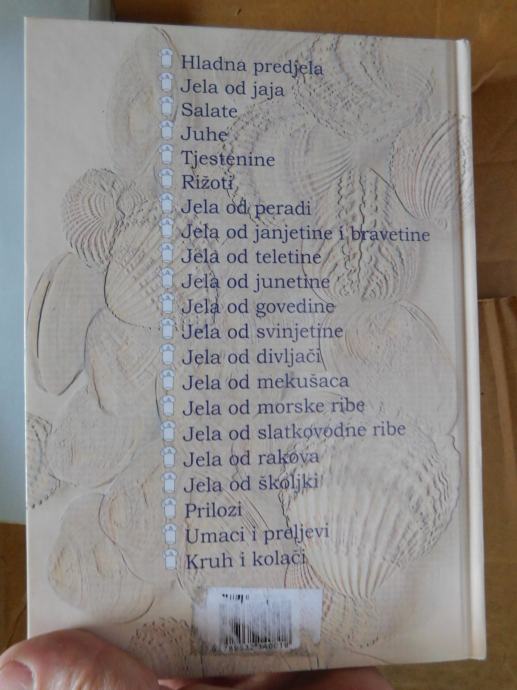 Hladna predjela
Jela od jaja
Salate
Juhe
Tjestenine
Rižoti
Jela od peradi
Jela od janjetine i bravetine
Jela od teletine
Jela od junetine
Jela od govedine
Jela od svinjetine
Jela od divljači
Jela od mekušaca
Jela od morske ribe
Jela od slatkovodne ribe
Jela od rakova
Jela od školjki
Prilozi
Umaci i preljevi
Kruh i kolači